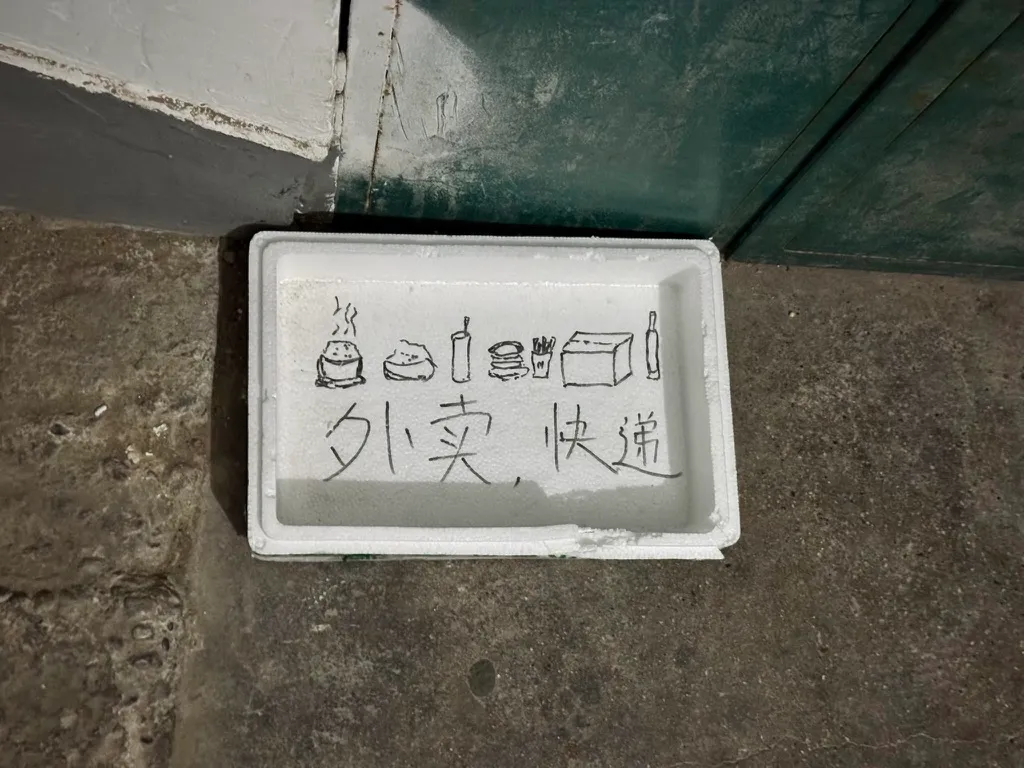 外卖,快递